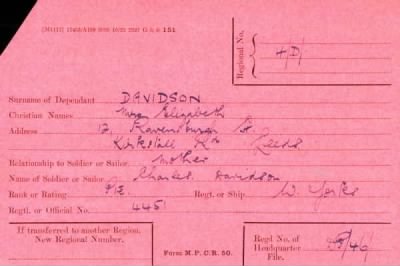 (M5117) 17453/A189 300M 10/22 2397 G & S 151
Regional No.
4/D/
Surname of Dependant DAVIDSON
Christian Names Mary Elizabeth
Address 12, Ravensburgh St.
Kirkstall Rd. Leeds
Relationship to Soldier or Sailor Mother
Name of Soldier or Sailor Charles Davidson
Rank or Rating Pte. Regt. or Ship W. Yorks
Regtl. or Official No. 4451
If transferred to another Region.
New Regional Number.
Form M.P.C.R. 50.
Regd No. of
Headquarter
File. /40/